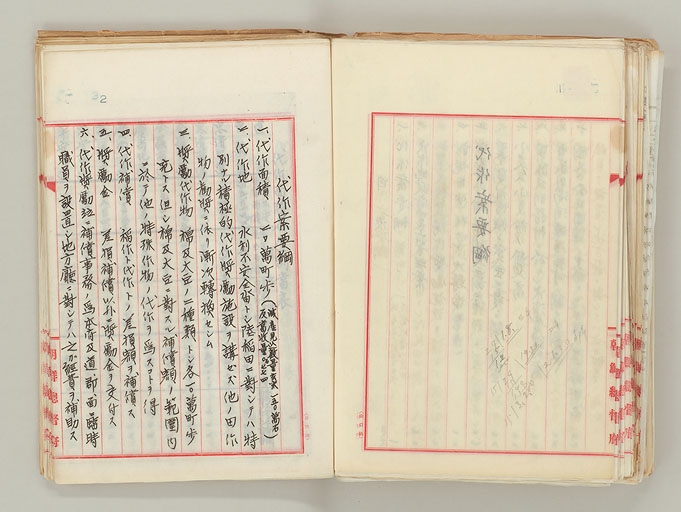 代作案要綱
代作案要綱
一、代作面積 二〇萬町歩(減産見込數量玄米一五〇萬石
反當收量〇石七四)
二、代作地 水利不安全畓トシ陸稻田ニ對シテハ特
別ナル積極的代作奬勵施設ヲ講セス他ノ田作
物ノ勵奬ニ依リ漸次轉換セシム
三、奬勵代作物 棉及大豆ノ二種類トシ各一〇萬町歩
宛トス但シ棉及大豆ニ對スル補償額ノ範圍内
ニ於テ他ノ特殊作物ノ代作ヲ爲スコトヲ得
四、代作補償 稻作ト代作トノ差損額ヲ補償ス
五、奬勵金 差損補償以外ニ奬勵金ヲ交付ス
六、代作奬勵竝ニ補償事務ノ爲本府及道郡面ニ臨時
職員ヲ設置シ地方廳ニ對シテハ之カ經費ヲ補助ス
朝鮮總督府
朝鮮總督府